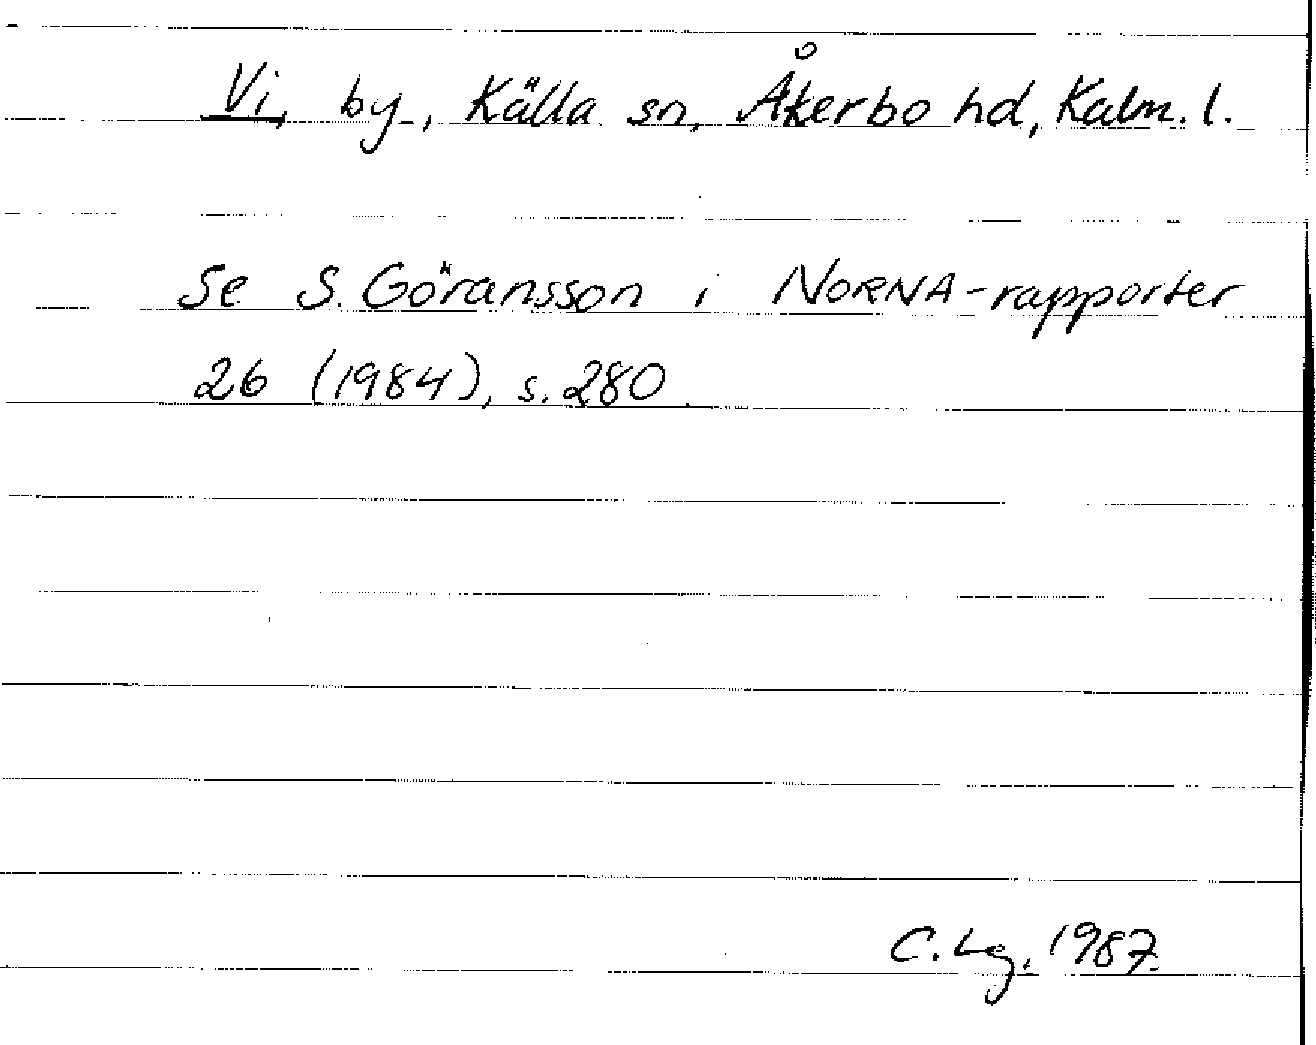 Vi, by, Källa sn, Åkerbo hd, Kalm. l.
Se S. Göransson i NORNA-rapporter
26 (1984), s. 280.
C. Lg. 1987.